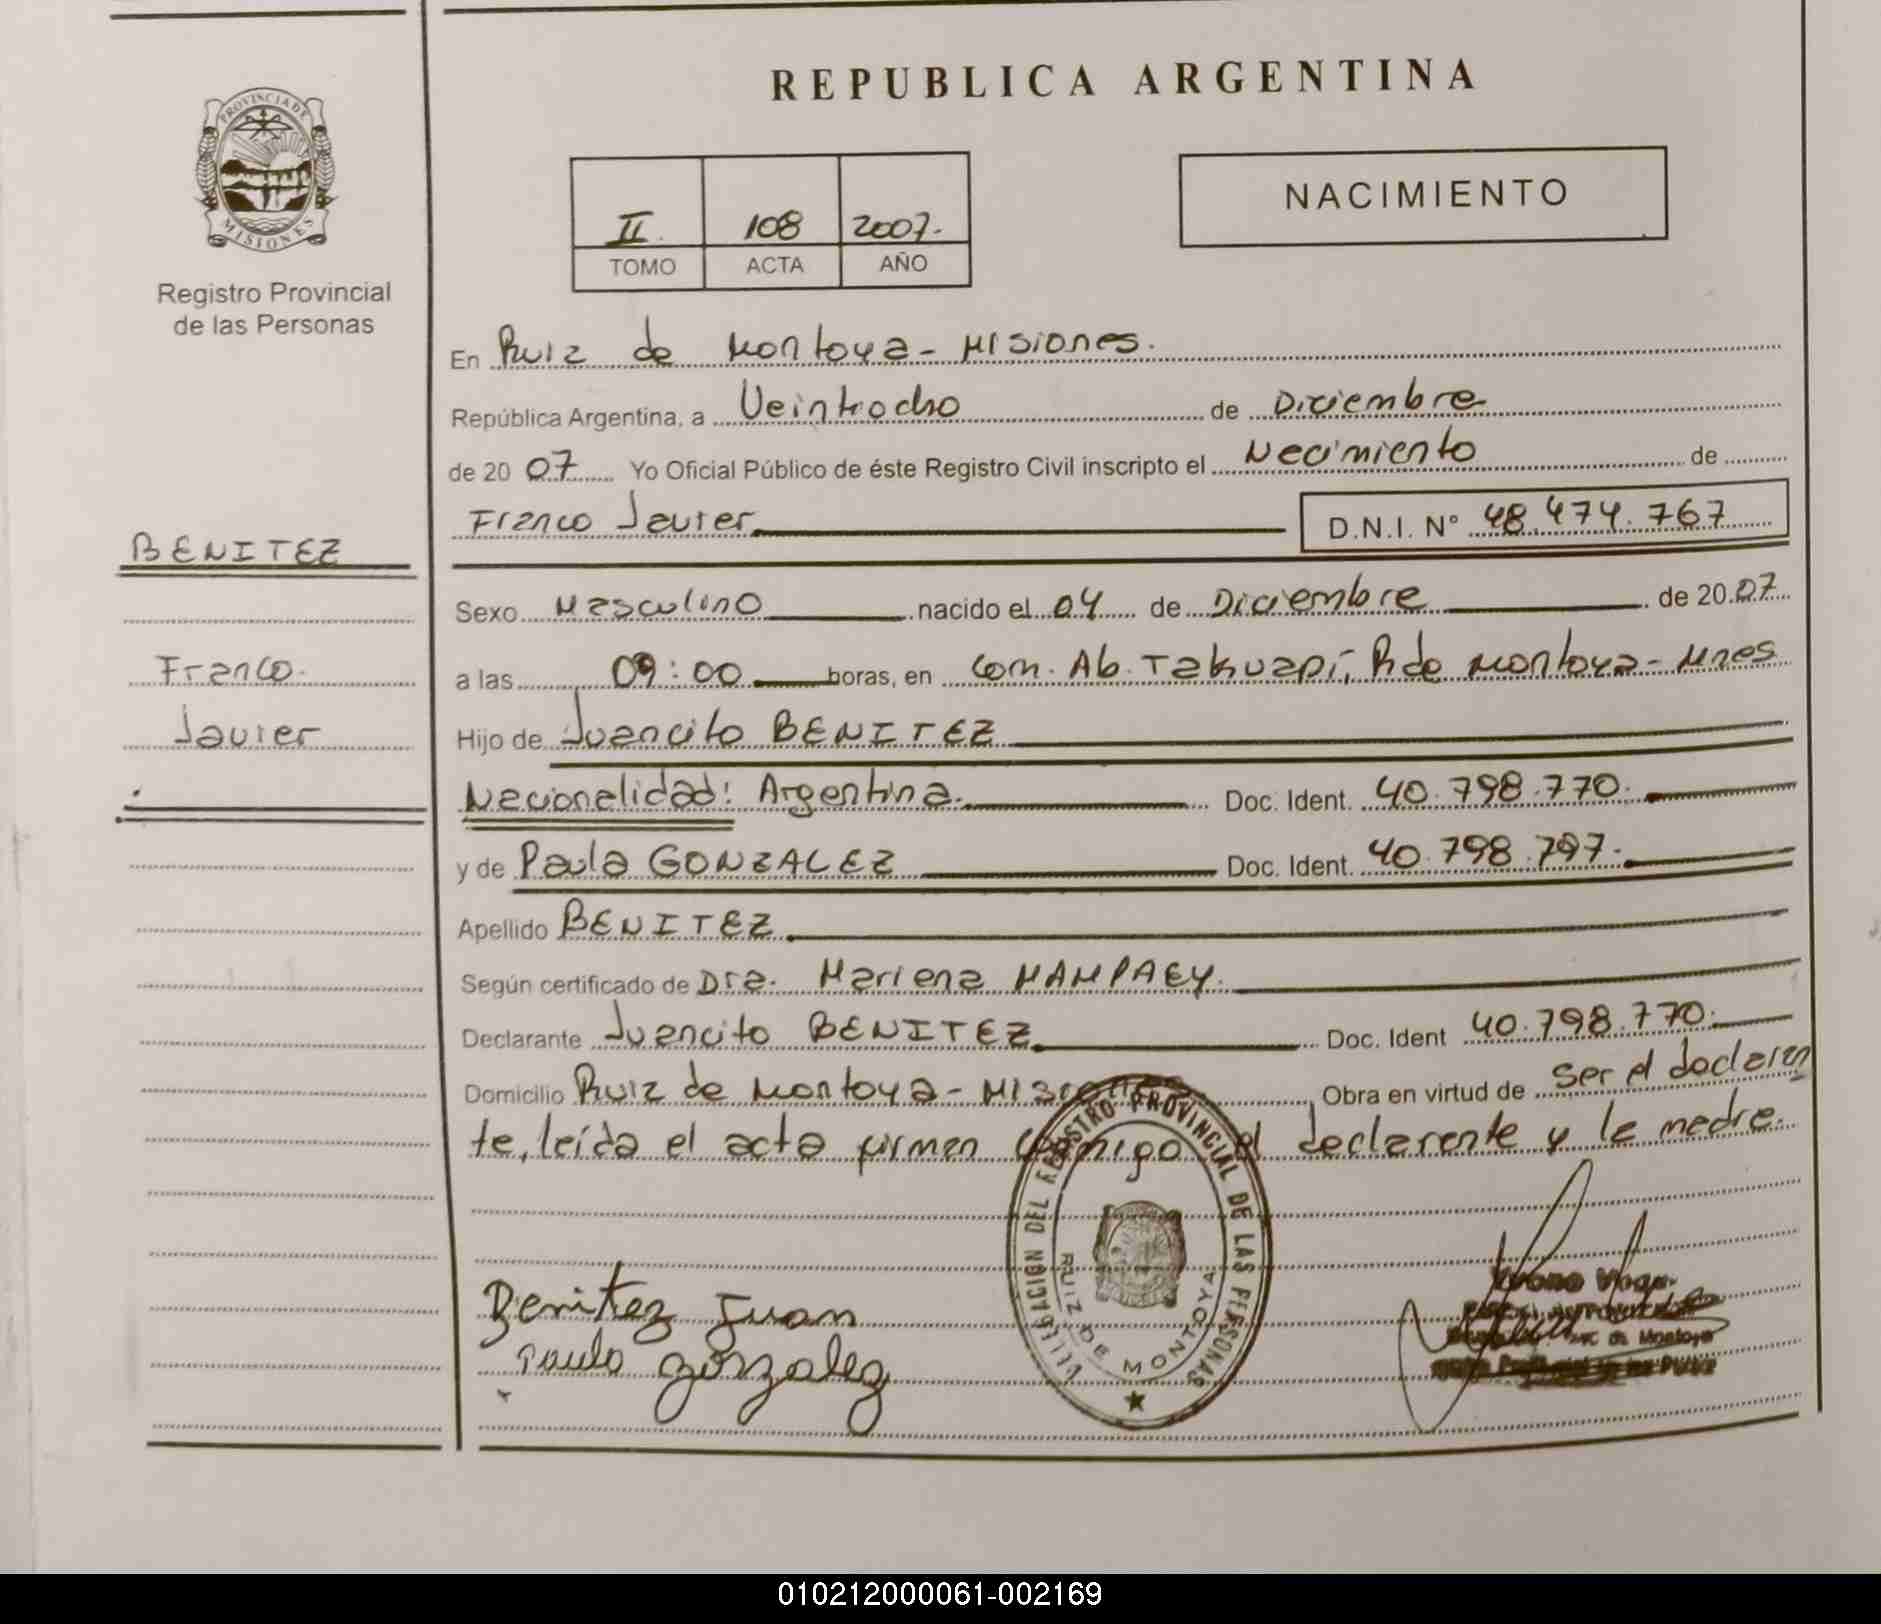 REPUBLICA ARGENTINA
PROVINCIA DE MISIONES
Registro Provincial
de las Personas
II. 108 2007.
TOMO ACTA AÑO
NACIMIENTO
En Ruiz de Montoya - Misiones.
República Argentina, a Veintiocho de Diciembre
de 20 07 Yo Oficial Público de éste Registro Civil inscripto el Nacimiento de
Franco Javier D.N.I. N° 48.474.767
BENITEZ
Franco
Javier
Sexo Masculino nacido el 04 de Diciembre de 20 07
a las 09:00 horas, en Com. Ab. Takuapí, R de Montoya - Mnes
Hijo de Juancito BENITEZ
Nacionalidad: Argentina. Doc. Ident. 40.798.770.
y de Paula GONZALEZ Doc. Ident. 40.798.797.
Apellido BENITEZ
Según certificado de Dra. Mariana MAMPAEY.
Declarante Juancito BENITEZ Doc. Ident 40.798.770.
Domicilio Ruiz de Montoya - Misiones Obra en virtud de ser el declaran
te, leída el acta firman conmigo el declarante y la madre.
DELEGACION DEL REGISTRO PROVINCIAL DE LAS PERSONAS
RUIZ DE MONTOYA
Benitez Juan
Paula Gonzalez
010212000061-002169